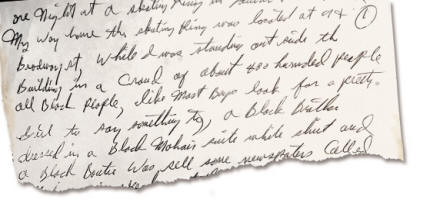 one Night at a skating Ring in
My way home the skating Ring was located at ①
Broadway st, While I was standing out side th
Building in a Croud of about 400 hundred people
all Black People, like Most Boys look for a pretty
Girl to say something to, a Black Brother
dressed in a Black Mohair suite white shirt and
a Black Boutie Was sell some newspapers Called